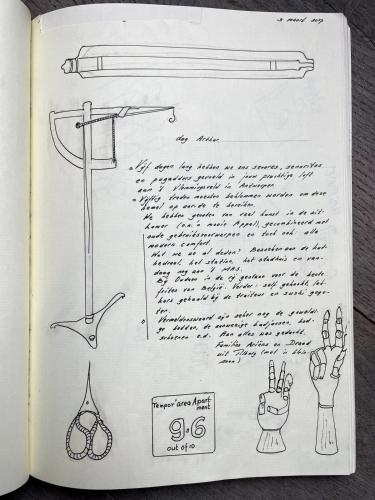 3 maart 2017
dag Arthur.
o Vijf dagen lang hebben we ons senores, senoritas
en pagadders gevoeld in jouw prachtige loft
aan 't Vlemincksveld in Antwerpen.
o Vijftig treden moesten beklommen worden om deze
hemel op aarde te bereiken.
We hebben genoten van veel kunst in de zit-
kamer (o.a. 'n mooie Appel), gecombineerd met
oude gebruiksvoorwerpen en toch ook: alle
modern comfort.
Wat we al deden? Bezoeken aan de kat-
hedraal, het station, het stadhuis en van-
daag nog aan 't MAS.
Bij in de rij gestaan voor de beste
frites van België. Verder: zelf gekookt, lek-
kers gehaald bij de traiteur en sushi gege-
ten.
o Vermeldenswaard zijn zeker nog de geweldi-
ge bedden, de badjassen, bad-
schoenen e.d. Aan alles was gedacht.
Families Ariëns en
uit Tilburg (met 'n klein-
zoon)
Tempor'area Apart
ment
9.6
out of 10